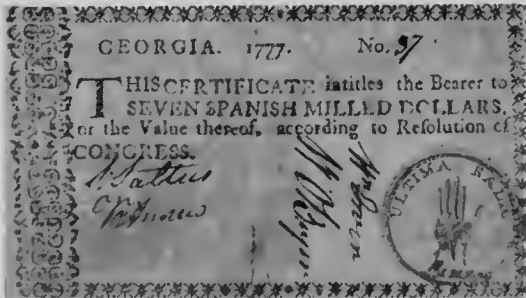 GEORGIA. 1777. No. 37.
THIS CERTIFICATE intitles the Bearer to
SEVEN SPANISH MILLED DOLLARS,
or the Value thereof, according to Resolution of
CONGRESS.
ULTIMA RATIO